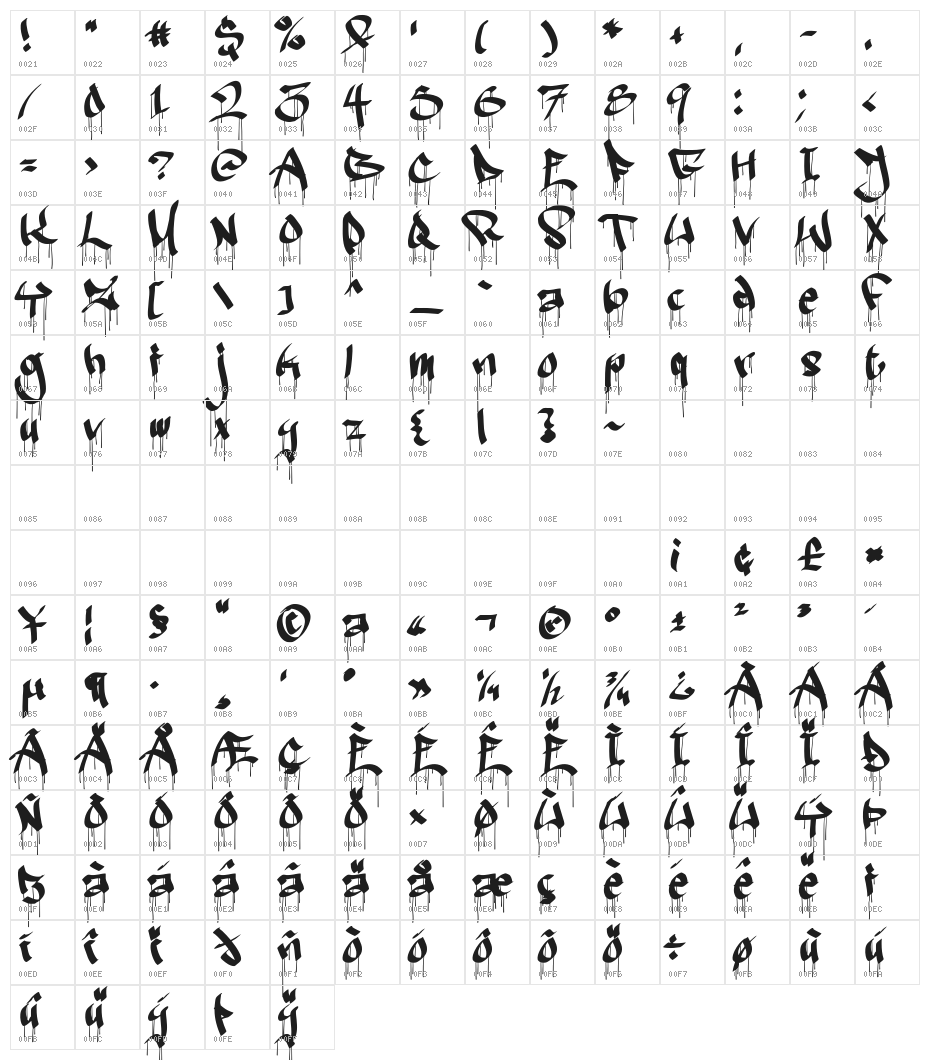 ! " # $ % & ' ( ) * + , - .
0021 0022 0023 0024 0025 0026 0027 0028 0029 002A 002B 002C 002D 002E
/ 0 1 2 3 4 5 6 7 8 9 : ; <
002F 0030 0031 0032 0033 0034 0035 0036 0037 0038 0039 003A 003B 003C
= > ? @ A B C D E F G H I J
003D 003E 003F 0040 0041 0042 0043 0044 0045 0046 0047 0048 0049 004A
K L M N O P Q R S T U V W X
004B 004C 004D 004E 004F 0050 0051 0052 0053 0054 0055 0056 0057 0058
Y Z [ \ ] ^ _ ` a b c d e f
0059 005A 005B 005C 005D 005E 005F 0060 0061 0062 0063 0064 0065 0066
g h i j k l m n o p q r s t
0067 0068 0069 006A 006B 006C 006D 006E 006F 0070 0071 0072 0073 0074
u v w x y z { | } ~
0075 0076 0077 0078 0079 007A 007B 007C 007D 007E 0080 0082 0083 0084
0085 0086 0087 0088 0089 008A 008B 008C 008E 0091 0092 0093 0094 0095
¡ ¢ £ ¤
0096 0097 0098 0099 009A 009B 009C 009E 009F 00A0 00A1 00A2 00A3 00A4
¥ ¦ § ¨ © ª « ¬ ® ° ± ² ³ ´
00A5 00A6 00A7 00A8 00A9 00AA 00AB 00AC 00AE 00B0 00B1 00B2 00B3 00B4
µ ¶ · ¸ ¹ º » ¼ ½ ¾ ¿ À Á Â
00B5 00B6 00B7 00B8 00B9 00BA 00BB 00BC 00BD 00BE 00BF 00C0 00C1 00C2
Ã Ä Å Æ Ç È É Ê Ë Ì Í Î Ï Ð
00C3 00C4 00C5 00C6 00C7 00C8 00C9 00CA 00CB 00CC 00CD 00CE 00CF 00D0
Ñ Ò Ó Ô Õ Ö × Ø Ù Ú Û Ü Ý Þ
00D1 00D2 00D3 00D4 00D5 00D6 00D7 00D8 00D9 00DA 00DB 00DC 00DD 00DE
ß à á â ã ä å æ ç è é ê ë ì
00DF 00E0 00E1 00E2 00E3 00E4 00E5 00E6 00E7 00E8 00E9 00EA 00EB 00EC
í î ï ð ñ ò ó ô õ ö ÷ ø ù ú
00ED 00EE 00EF 00F0 00F1 00F2 00F3 00F4 00F5 00F6 00F7 00F8 00F9 00FA
û ü ý þ ÿ
00FB 00FC 00FD 00FE 00FF